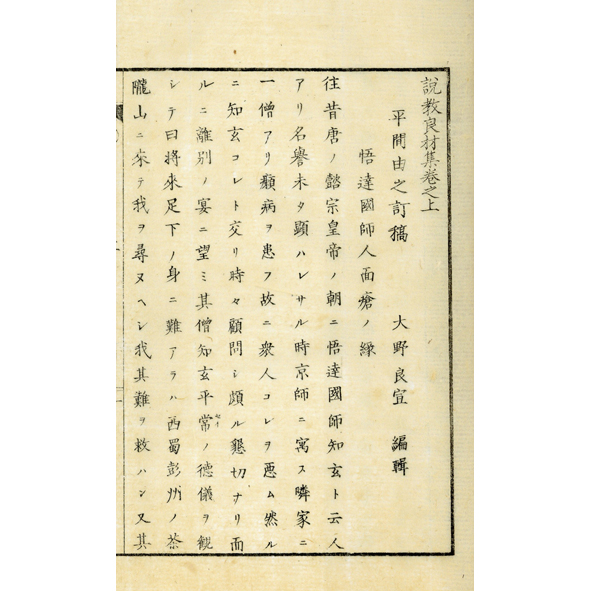 說教良材集卷之上
平間由之訂稿　大野良宣　編輯
悟達國師人面瘡ノ縁
往昔唐ノ懿宗皇帝ノ朝ニ悟達國師知玄ト云人
アリ名譽未タ顯ハレサル時京師ニ寓ス隣家ニ
一僧アリ癩病ヲ患フ故ニ衆人コレヲ惡ム然ル
ニ知玄コレト交リ時々顧問シ頗ル懇切ナリ而
ルニ離別ノ宴ニ望ミ其僧知玄平常ノ德儀ヲ觀
シテ曰將來足下ノ身ニ難アラハ西蜀彭州ノ茶
隴山ニ來テ我ヲ尋ヌヘシ我其難ヲ救ハン又其